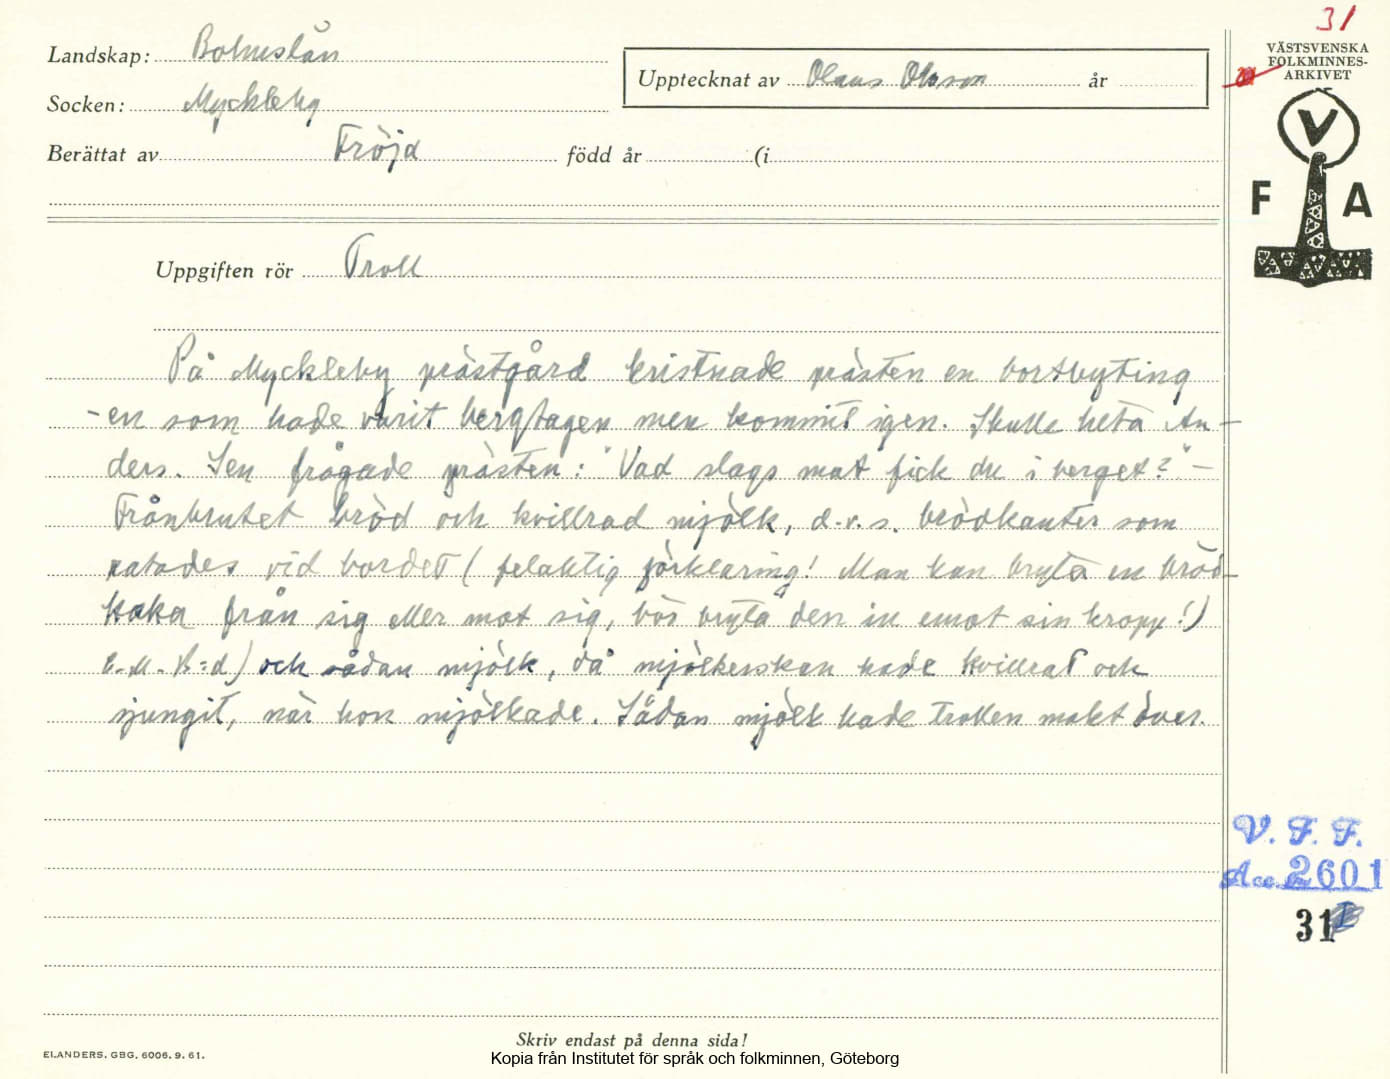 31
Landskap: Bohuslän
Socken: Myckleby
Berättat av Fröjd född år (i
Upptecknat av Olaus Olsson år
VÄSTSVENSKA
FOLKMINNES-
ARKIVET
V
F A
Uppgiften rör Troll
På Myckleby prästgård kristnade prästen en bortbyting
- en som hade varit bergtagen men kommit igen. Skulle heta An-
ders. Sen frågade prästen: "Vad slags mat fick du i berget?" -
Frånbrutet bröd och kvillrad mjölk, d.v.s. brödkanter som
ratades vid bordet (felaktig förklaring! Man kan bryta en bröd-
kaka från sig eller mot sig, bör bryta den in emot sin kropp!)
och sådan mjölk, då mjölkerskan hade kvillrat och
sjungit, när hon mjölkade. Sådan mjölk hade trollen makt över.
V. F. F.
Acc. 2601
31
Skriv endast på denna sida!
ELANDERS, GBG, 6006. 9. 61.
Kopia från Institutet för språk och folkminnen, Göteborg